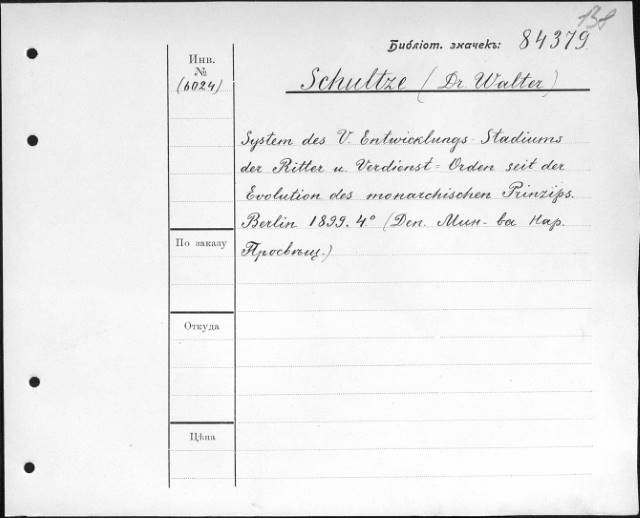 138
Библіот. значекъ: 84379.
Инв.
№
(6024)
Schultze (Dr. Walter)
System des V. Entwicklungs-Stadiums
der Ritter u. Verdienst=Orden seit der
Evolution des monarchischen Prinzips.
Berlin 1899. 4.° (Деп. Мин-ва Нар.
Просвѣщ.)
По заказу
Откуда
Цѣна